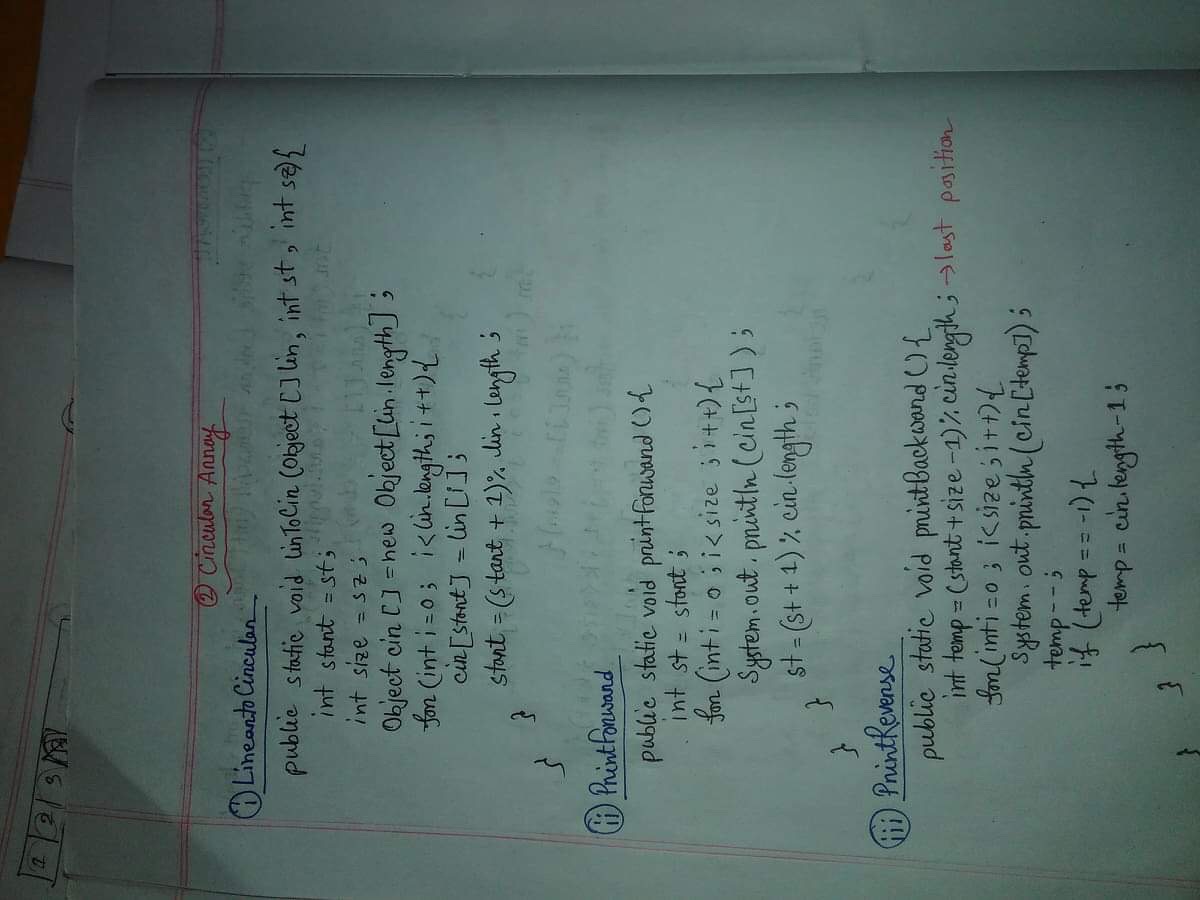 ② Circular Array
i) Linear to Circular
public static void linToCir(Object [] lin, int st, int sz){
int start = st;
int size = sz;
Object cir [] = new Object[lin.length];
for (int i = 0; i < lin.length; i++){
cir[start] = lin[i];
start = (start + 1) % lin.length;
}
}
ii) Print Forward
public static void printforward(){
int st = start;
for (int i = 0; i < size; i++){
System.out.println(cir[st]);
st = (st + 1) % cir.length;
}
}
iii) Print Reverse
public static void printBackward(){
int temp = (start + size - 1) % cir.length; → last position
for(int i = 0; i < size; i++){
System.out.println(cir[temp]);
temp--;
if (temp == -1){
temp = cir.length-1;
}
}
}